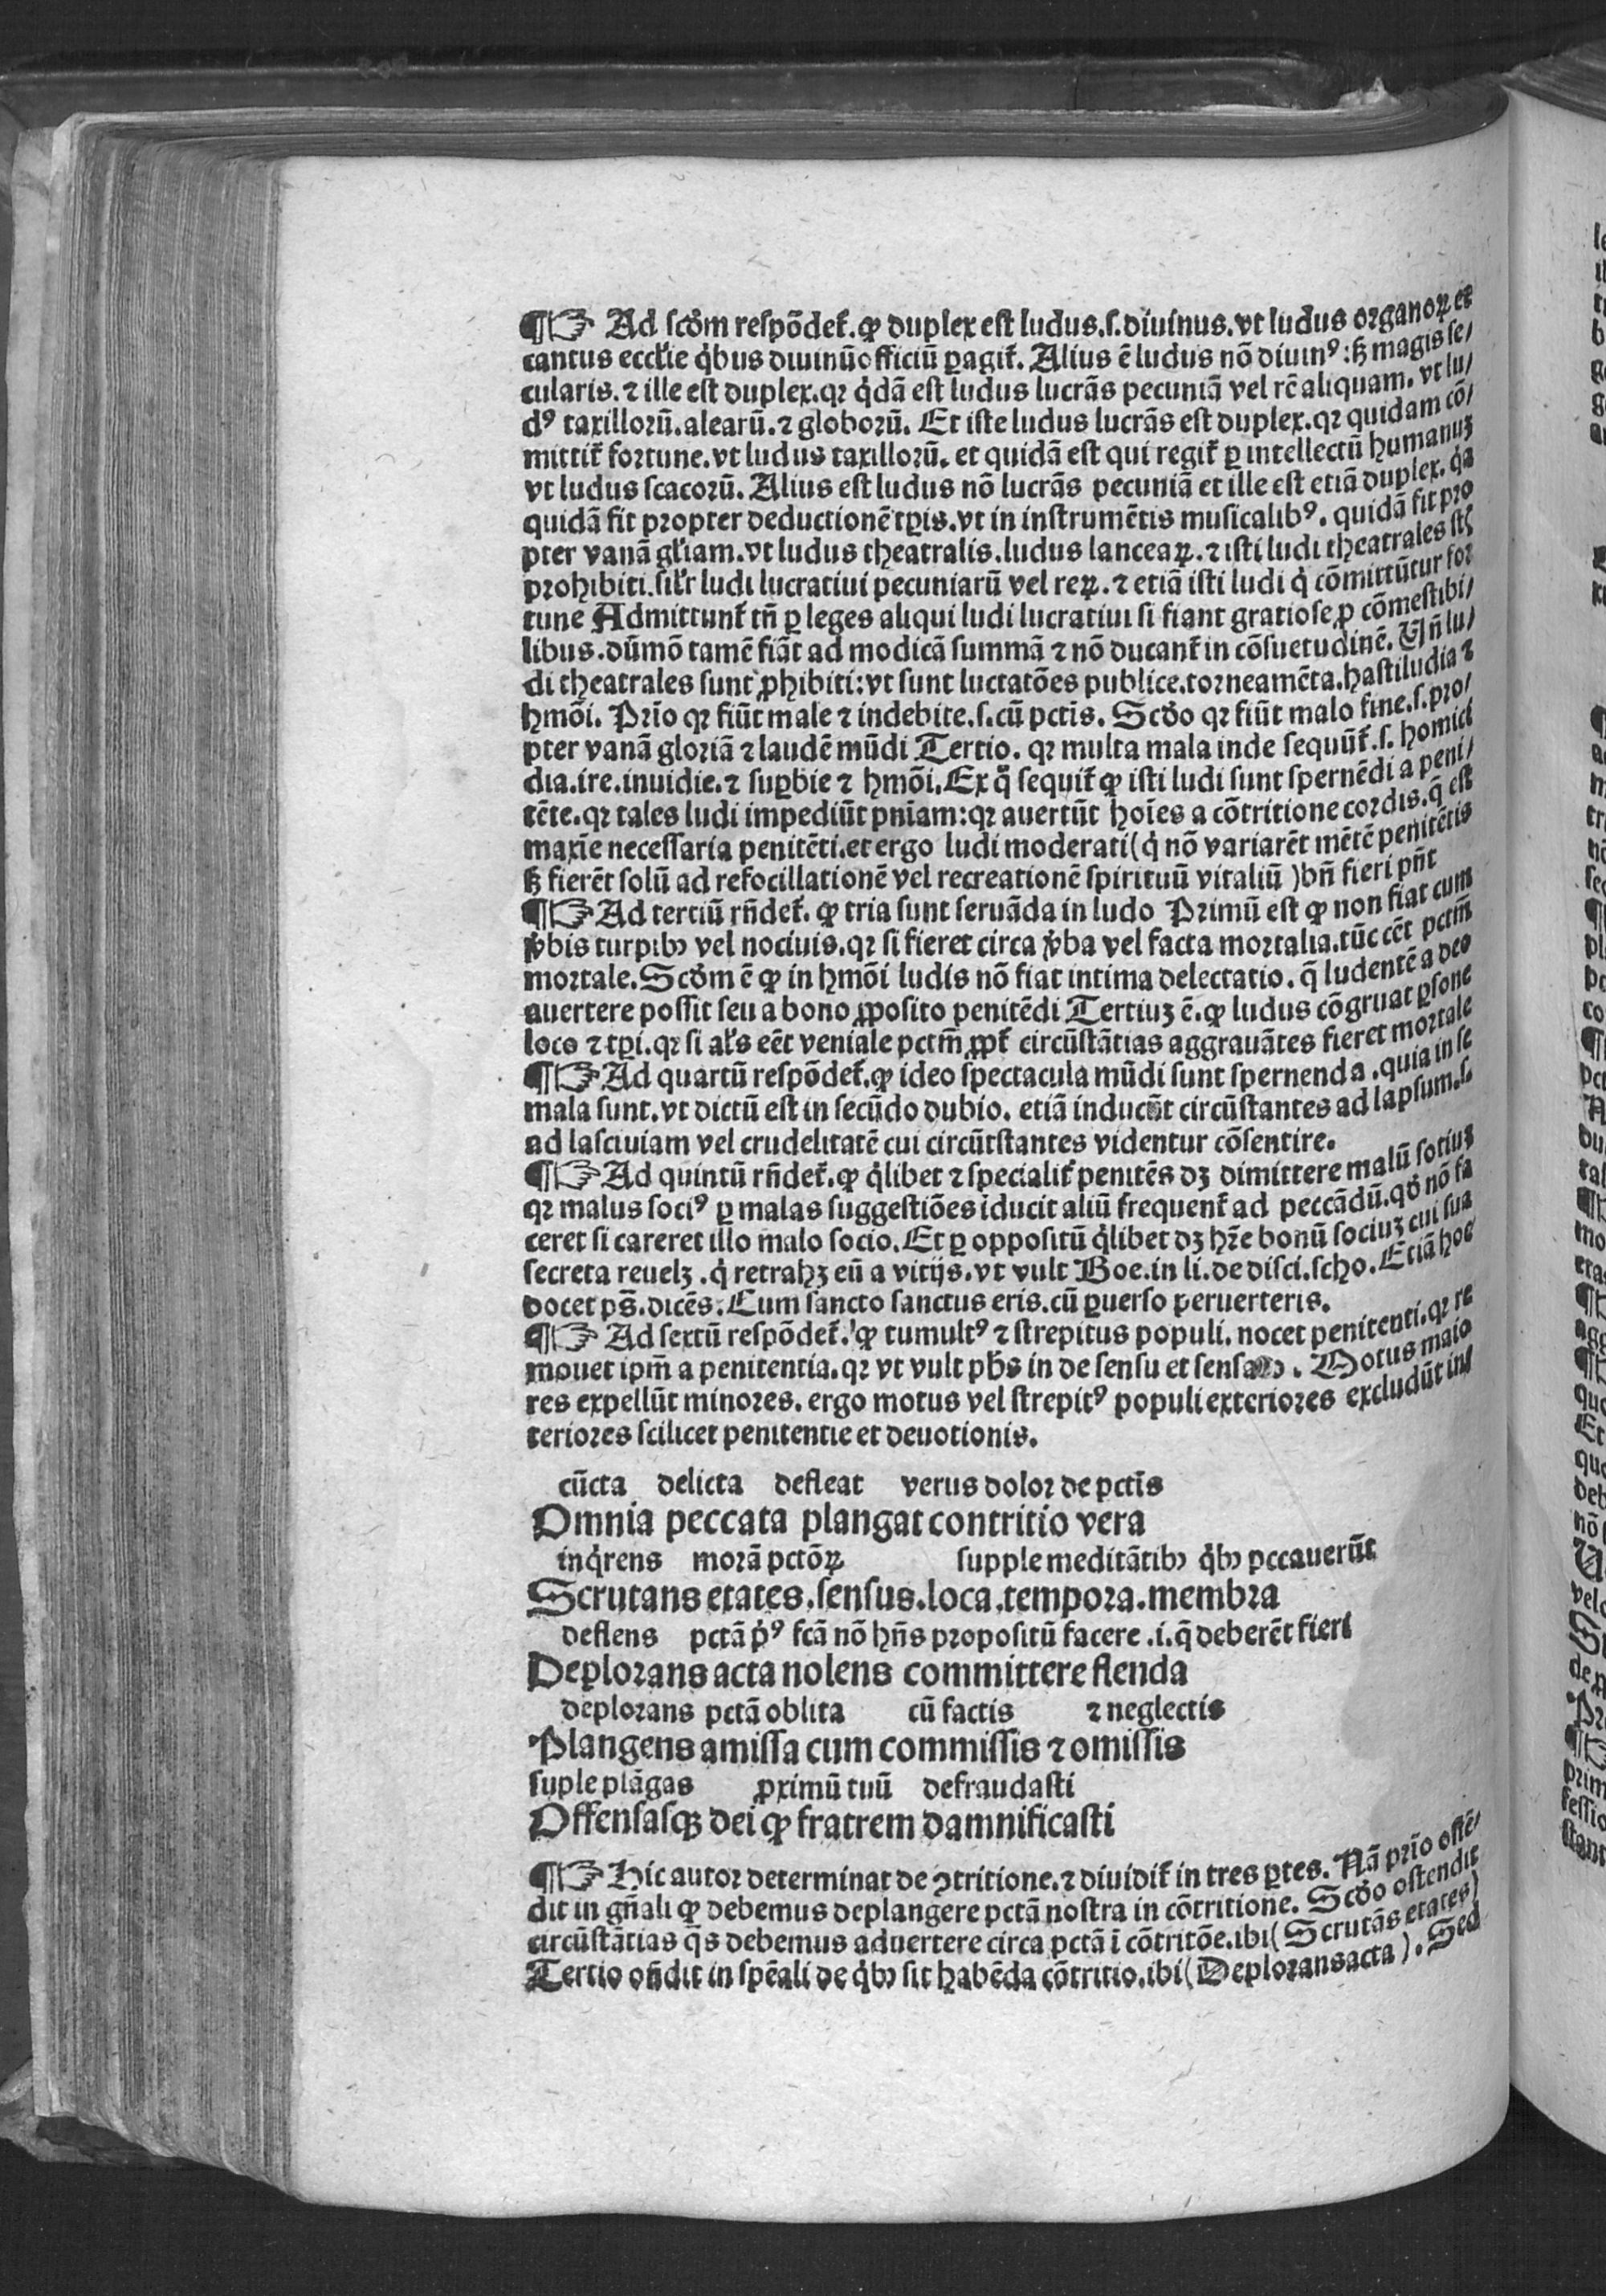 ¶☞ Ad scd̓m respõdet᷑. ꝙ duplex est ludus.s.diuinus.vt ludus organoꝝ et
cantus eccl̓ie q̇bus diuinũ officiũ ꝑagit᷑. Alius ẽ ludus nõ diuinꝰ:sꝫ magis se/
cularis. ⁊ ille est duplex.qꝛ q̇dã est ludus lucrãs pecuniã vel rẽ aliquam. vt lu/
dꝰ taxillorũ.alearũ.⁊ globorũ. Et iste ludus lucrãs est duplex.qꝛ quidam cõ/
mittit᷑ fortune.vt ludus taxillorũ. et quidã est qui regit᷑ ꝑ intellectũ humanuꝫ
vt ludus scacorũ. Alius est ludus nõ lucrãs pecuniã et ille est etiã duplex. q̇a
quidã fit propter deductionẽ tꝑis.vt in instrumẽtis musicalibꝰ. quidã fit pro
pter vanã gl̓iam.vt ludus theatralis.ludus lanceaꝝ. ⁊ isti ludi theatrales st̃
prohibiti.sil̓r ludi lucratiui pecuniarũ vel reꝝ. ⁊ etiã isti ludi q̇ cõmittũtur for
tune Admittunt᷑ tñ ꝑ leges aliqui ludi lucratiui si fiant gratiose ꝓ cõmestibi/
libus.dũmõ tamẽ fiãt ad modicã summã ⁊ nõ ducant᷑ in cõsuetudinẽ. Vñ lu/
di theatrales sunt ꝓhibiti:vt sunt luctatões publice.torneamẽta.hastiludia ⁊
hmõi. Prĩo qꝛ fiũt male ⁊ indebite.s.cũ pctĩs. Scd̓o qꝛ fiũt malo fine.s.pro/
pter vanã gloriã ⁊ laudẽ mũdi Tertio. qꝛ multa mala inde sequũt᷑.s. homici
dia.ire.inuidie.⁊ supꝑbie ⁊ hmõi.Ex q̊ sequit᷑ ꝙ isti ludi sunt spernẽdi a peni/
tẽte.qꝛ tales ludi impediũt pnĩam:qꝛ auertũt hoĩes a cõtritione cordis.q̃ est
maxĩe necessaria penitẽti.et ergo ludi moderati(q̇ nõ variarẽt mẽtẽ penitẽtis
sꝫ fierẽt solũ ad refocillationẽ vel recreationẽ spirituũ vitaliũ )bñ fieri pñt
¶☞ Ad tertiũ rñdet᷑. ꝙ tria sunt seruãda in ludo Primũ est ꝙ non fiat cum
v̓bis turpibꝫ vel nociuis.qꝛ si fieret circa v̓ba vel facta mortalia.tũc eẽt pctm̃
mortale.Scd̓m ẽ ꝙ in hmõi ludis nõ fiat intima delectatio. q̃ ludentẽ a deo
auertere possit seu a bono ꝓposito penitẽdi Tertiuꝫ ẽ.ꝙ ludus cõgruat ꝑsone
loco ⁊ tꝑi.qꝛ si al̓s eẽt veniale pctm̃ ꝓpt᷑ circũstãtias aggrauãtes fieret mortale
¶☞ Ad quartũ respõdet᷑.ꝙ ideo spectacula mũdi sunt spernenda .quia in se
mala sunt.vt dictũ est in secũdo dubio. etiã inducũt circũstantes ad lapsum.s.
ad lasciuiam vel crudelitatẽ cui circũstantes videntur cõsentire.
¶☞ Ad quintũ rñdet᷑.ꝙ q̇libet ⁊ specialit᷑ penitẽs dꝫ dimittere malũ sotiuꝫ
qꝛ malus sociꝰ ꝑ malas suggestiões iducit aliũ frequent᷑ ad peccãdũ.qd̓ nõ fa
ceret si careret illo malo socio. Et ꝑ oppositũ q̇libet dꝫ hr̃e bonũ sociuꝫ cui sua
secreta reuelꝫ .q̇ retrahꝫ eũ a vitijs.vt vult Boe.in li.de disci.scho. Etiã hoc
docet pš.dicẽs: Cum sancto sanctus eris.cũ ꝑuerso peruerteris.
¶☞ Ad sextũ respõdet᷑.ꝙ tumultꝰ ⁊ strepitus populi. nocet penitenti.qꝛ re
mouet ipm̃ a penitentia.qꝛ vt vult ph̓s in de sensu et sensato. Motus maio
res expellũt minores. ergo motus vel strepitꝰ populi exteriores excludũt in/
teriores scilicet penitentie et deuotionis.
cũcta delicta defleat verus dolor de pctĩs
Omnia peccata plangat contritio vera
inq̇rens morã pctõꝝ supple meditãtibꝫ q̇bꝫ pccauerũt
Scrutans etates.sensus.loca.tempora.membra
deflens pctã pꝰ fcã nõ hñs propositũ facere .i.q̃ deberẽt fieri
Deplorans acta nolens committere flenda
deplorans pctã oblita cũ factis ⁊ neglectis
Plangens amissa cum commissis ⁊ omissis
suple plãgas ꝓximũ tuũ defraudasti
Offensasqꝫ dei ꝙ fratrem damnificasti
¶☞ Hic autor determinat de ꝯtritione.⁊ diuidit᷑ in tres ꝑtes. Nã prĩo ostẽ/
dit in gñali ꝙ debemus deplangere pctã nostra in cõtritione. Scd̓o ostendit
circũstãtias q̃s debemus aduertere circa pctã ĩ cõtritõe.ibi( Scrutãs etates)
Tertio oñdit in spẽali de q̇bꝫ sit habẽda cõtritio.ibi( Deplorans acta ). Sed